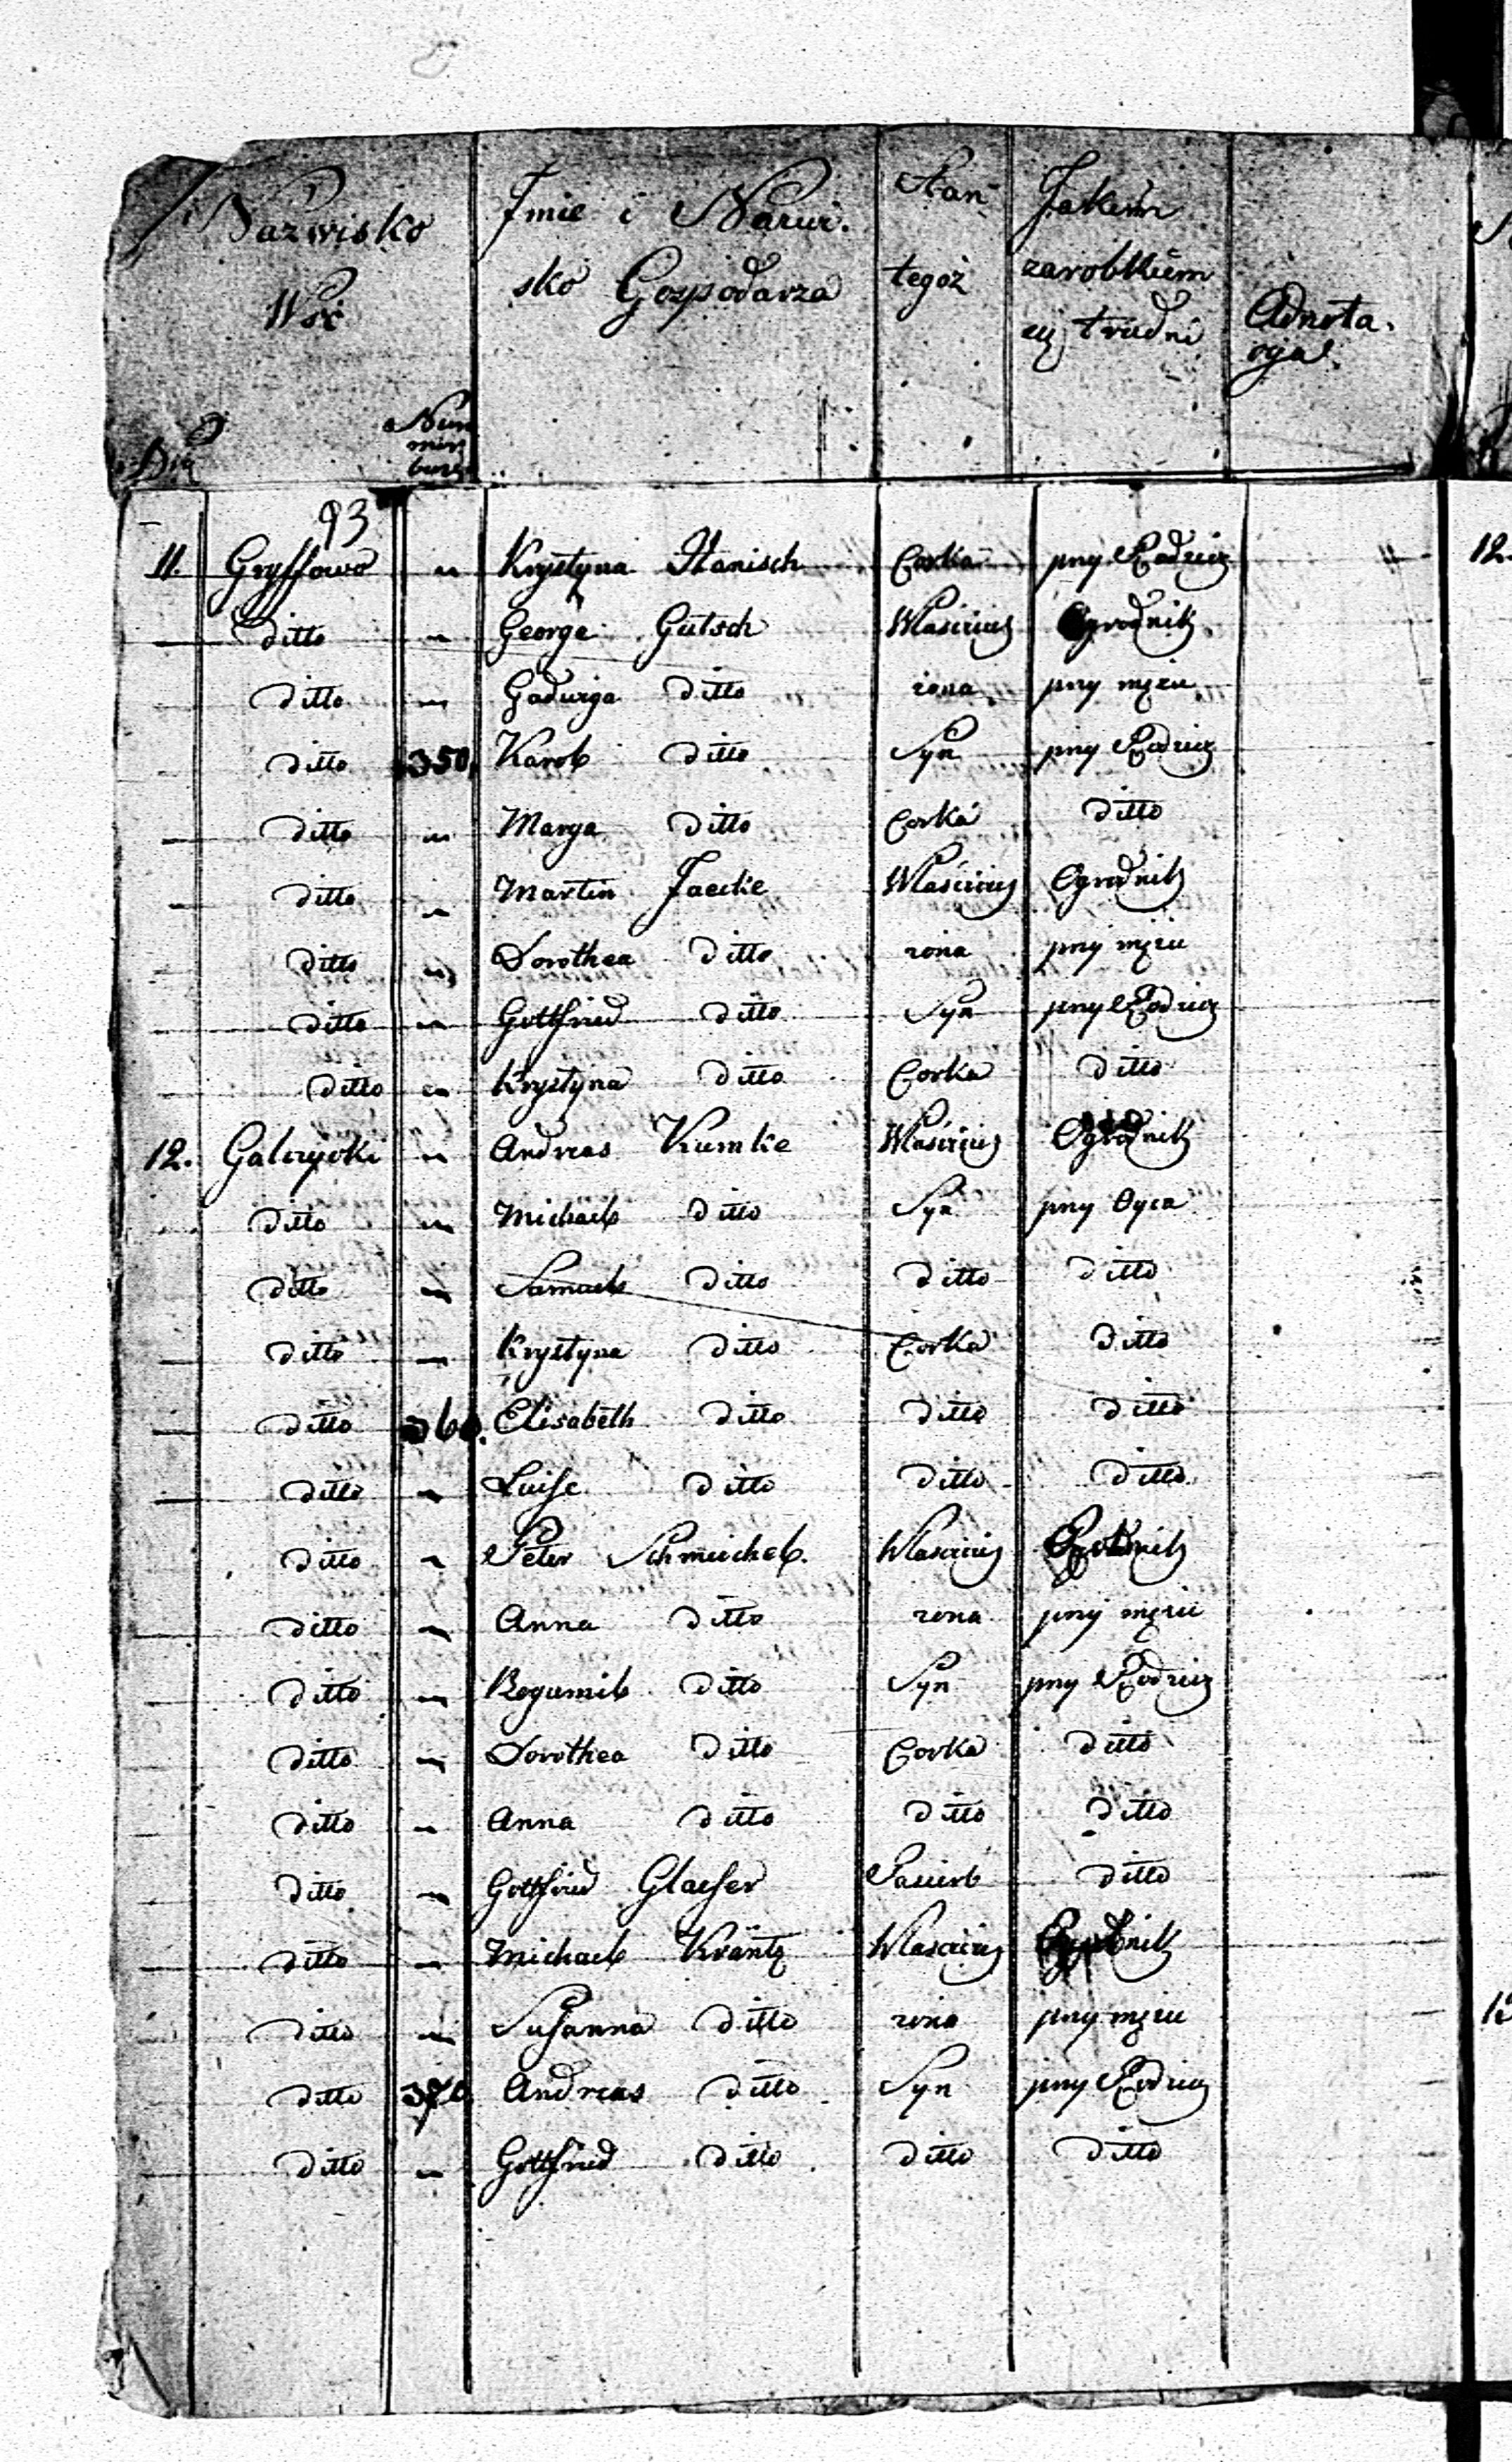 Nazwisko Wśi
Nummer
Imie i Nazwisko Gospodarza
Stan tegoż
Jakim zarobkiem się trudni
Adnotacyia
93
11. Gryffowo " Krystyna Hanisch Corka przy Rodzicz " 12
ditto " George Gutsch Własciciel Ogrodnik
ditto " Gadwiga ditto zona przy mężu
ditto 350. Karol ditto Syn przy Rodzicz
ditto " Marya ditto Corka ditto
ditto " Martin Jaecke Własciciel Ogrodnik
ditto " Dorothea ditto zona przy mężu
ditto " Gottfried ditto Syn przy Rodzicz
ditto " Krystyna ditto Corka ditto
12. Galczycki " Andreas Kumke Własciciel Ogrodnik
ditto " Michael ditto Syn przy Oyca
ditto " Samuel ditto ditto ditto
ditto " Krystyna ditto Corka ditto
ditto 360. Elisabeth ditto ditto ditto
ditto " Luise ditto ditto ditto
ditto " Peter Schmeichel. Własciciel Ogrodnik
ditto " Anna ditto zona przy mężu
ditto " Bogumil ditto Syn przy Rodzicz
ditto " Dorothea ditto Corka ditto
ditto " Anna ditto ditto ditto
ditto " Gottfried Glaeser Pasierb ditto
ditto " Michael Kräntz Własciciel Ogrodnik
ditto " Susanna ditto zona przy mężu
ditto 370 Andreas ditto Syn przy Rodzicz
ditto " Gottfried ditto ditto ditto